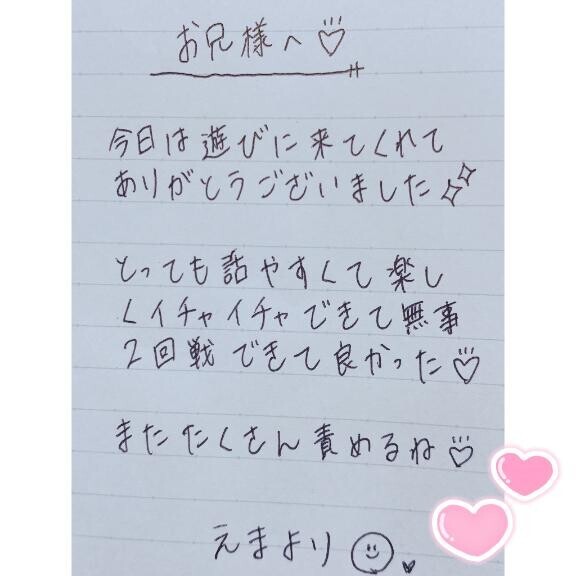 お兄様へ♡
今日は遊びに来てくれて
ありがとうございました
とっても話やすくて楽し
くイチャイチャできて無事
2回戦できて良かった♡
またたくさん責めるね♡
えまより